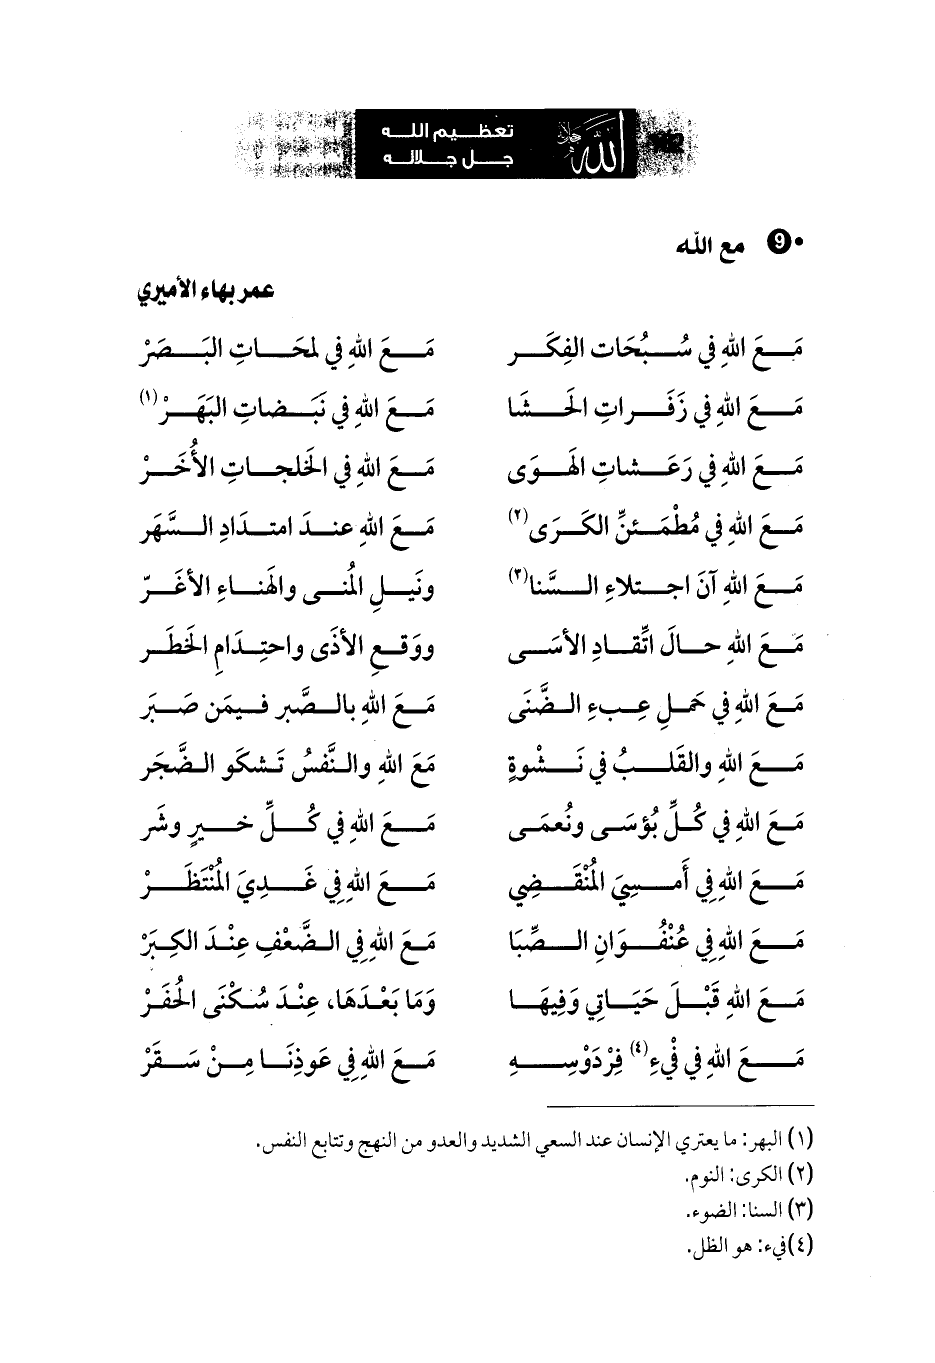 تعظيم الله
جل جلاله
الله جل جلاله
• 9 مع الله
عمر بهاء الأميري
مَعَ اللهِ في سُبُحَات الفِكَر مَعَ اللهِ في لمحَاتِ البَصَرْ
مَعَ اللهِ في زَفَراتِ الحَشَا مَعَ اللهِ في نَبَضاتِ البَهَرْ(١)
مَعَ اللهِ في رَعَشاتِ الهَوَى مَعَ اللهِ في الخَلجاتِ الأُخَرْ
مَعَ اللهِ في مُطْمَئنِّ الكَرَى(٢) مَعَ اللهِ عندَ امتدَادِ السَّهَر
مَعَ اللهِ آنَ اجتلاءِ السَّنا(٣) ونَيلِ المُنى والهَناءِ الأغَرّ
مَعَ اللهِ حالَ اتِّقادِ الأسَى ووَقعِ الأذَى واحتِدَامِ الخَطَر
مَعَ اللهِ في حَملِ عِبءِ الضَّنَى مَعَ اللهِ بالصَّبر فيمَن صَبَر
مَعَ اللهِ والقَلبُ في نَشْوةٍ مَعَ اللهِ والنَّفسُ تَشكَو الضَّجَر
مَعَ اللهِ في كُلِّ بُؤسَى ونُعمَى مَعَ اللهِ في كُلِّ خيرٍ وشَر
مَعَ اللهِ فِي أَمسِيَ المُنْقَضِي مَعَ اللهِ فِي غَدِيَ المُنْتَظَرْ
مَعَ اللهِ فِي عُنْفُوَانِ الصِّبَا مَعَ اللهِ فِي الضَّعْفِ عِنْدَ الكِبَرْ
مَعَ اللهِ قَبْلَ حَيَاتِي وَفِيهَا وَمَا بَعْدَهَا، عِنْدَ سُكْنَى الحُفَرْ
مَعَ اللهِ في فْيءِ(٤) فِرْدَوْسِهِ مَعَ اللهِ فِي عَوذِنَا مِنْ سَقَرْ
(١) البهر: ما يعتري الإنسان عند السعي الشديد والعدو من النهج وتتابع النفس.
(٢) الكرى: النوم.
(٣) السنا: الضوء.
(٤)فيء: هو الظل.